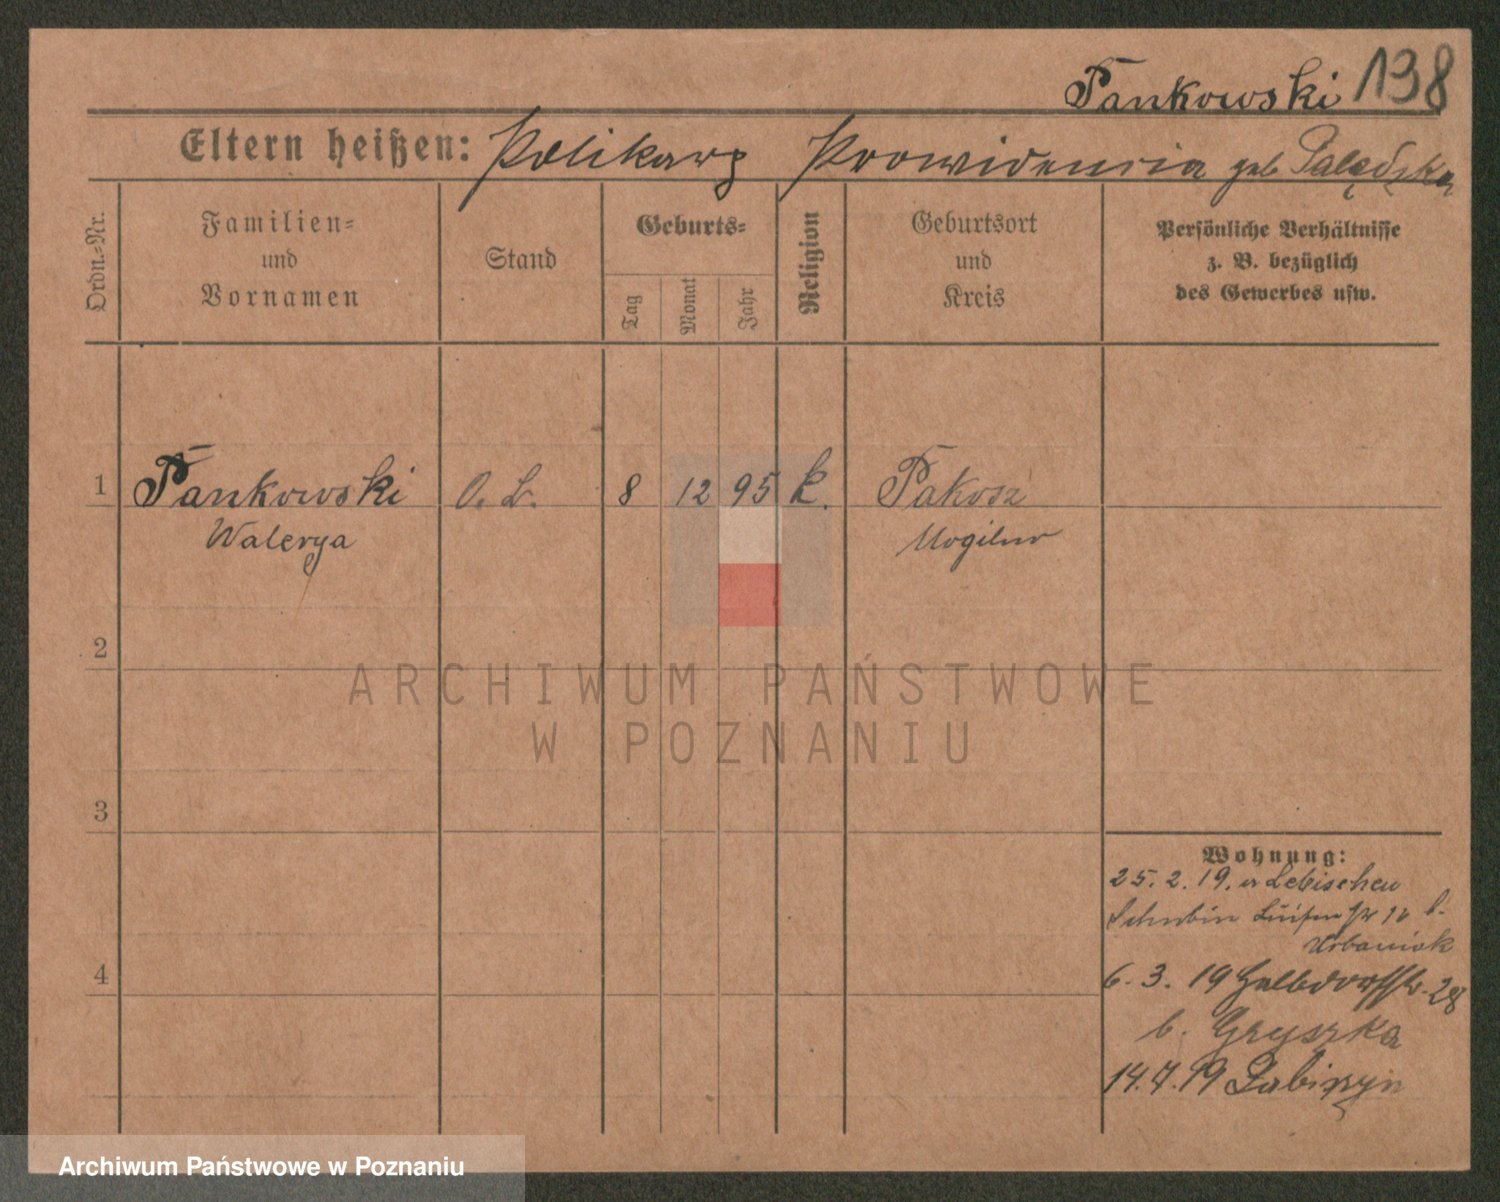 Pankowski 138
Eltern heißen: Polikarp Prowidencia geb
Ordn.-Nr.
Familien-
und
Vornamen
Stand
Geburts-
Tag
Monat
Jahr
Religion
Geburtsort
und
Kreis
Persönliche Verhältnisse
z. B. bezüglich
des Gewerbes usw.
1 Pankowski O. L. 8 12 95 k. Pakosz
Walerya Mogilno
2
3
4
ARCHIWUM PAŃSTWOWE
W POZNANIU
Wohnung:
25. 2. 19.
Schubin
Urbaniak
6. 3. 19
b. Gryszka
14.7.19 Labiszyn
Archiwum Państwowe w Poznaniu